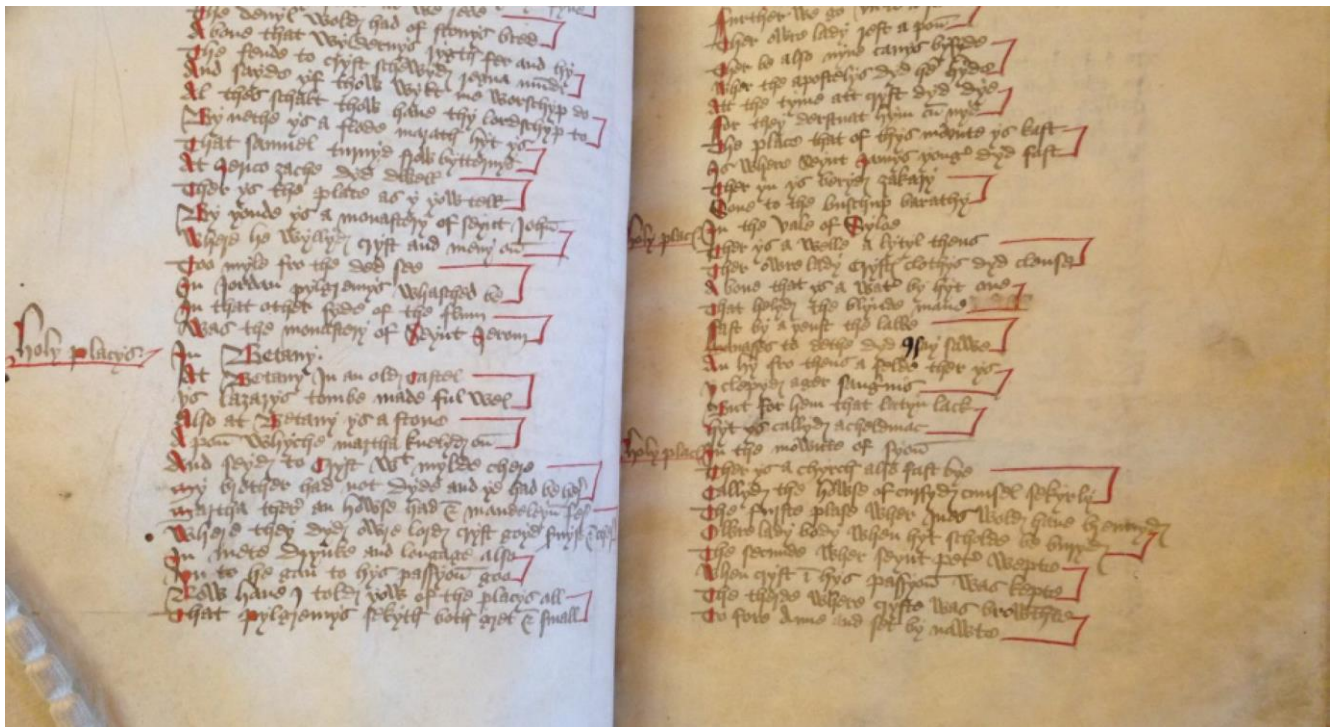 The denyl wold had of stonys bred
Above that wyldernys ryght fer and hy
The fende to cryst schewyd regna mundi
And sayde yf thow wylt me worschyp do
Al thes schalt thow have thy lordschyp to
By nethe ys a flode marath hyt ys
That samuel turnyd fro bytternys
At Jerico zache dyd dwell
Ther ys the place as y yow tell
By yonde ys a monastery of seynt John
Where he wyllyd cryst and meny on
Too myle fro the ded see
In Jordan pylgremys whasched be
In that other syde of the flum
Was the monastery of Seynt Jerom
holy placys
In Betany
At Betany In an old castel
ys lazarys tombe made ful wel
Also at Betany ys a stone
A pon whyche martha knelyd on
And seyd to Cryst wt mylde chere
my brother had not dyde and ye had be
martha ther an howse had & mandeleyn
Where they dyd owre lord cryst
In mete drynke and longage also
Jn to he gan to hys passyon goo
Now have I told yow of the placys all
That pylgremys sekyth both gret & small
Further we go
Ther owre lady rest a pon
Ther be also nyne cavys bysyde
Wher the apostelys dyd hyde
Att the tyme att cryst dyd dye
For they derst nat hym
The place that of thys mounte ys last
Is where Seynt Jamys yonger dyd fast
Ther yn ys beryed zakary
Sone to the busschop barathy
holy plac
In the vale of Syloe
Ther ys a welle a lytyl thens
Ther owre lady crystes clothys dyd clense
Above that ys a water by hyt one
That helyd the blynde mane
Fast by a yenst the lawe
to dethe dyd sawe
An hy fro thens a felde ther ys
y clepyd ager sanguinis
But for hem that latyn lack
Hyt ys callyd acheldmac
holy plac
In the mownte of Syon
Ther ys a church also fast bye
Callyd the howse of sekyrly
The furste place wher Jues wold have hentyd
Owre lady body when hyt scholde be buryed
The secunde wher seynt peter weptte
When cryst i hys passyon was kepte
The therde where cryste was browthte
To fore Anne and set by nawte